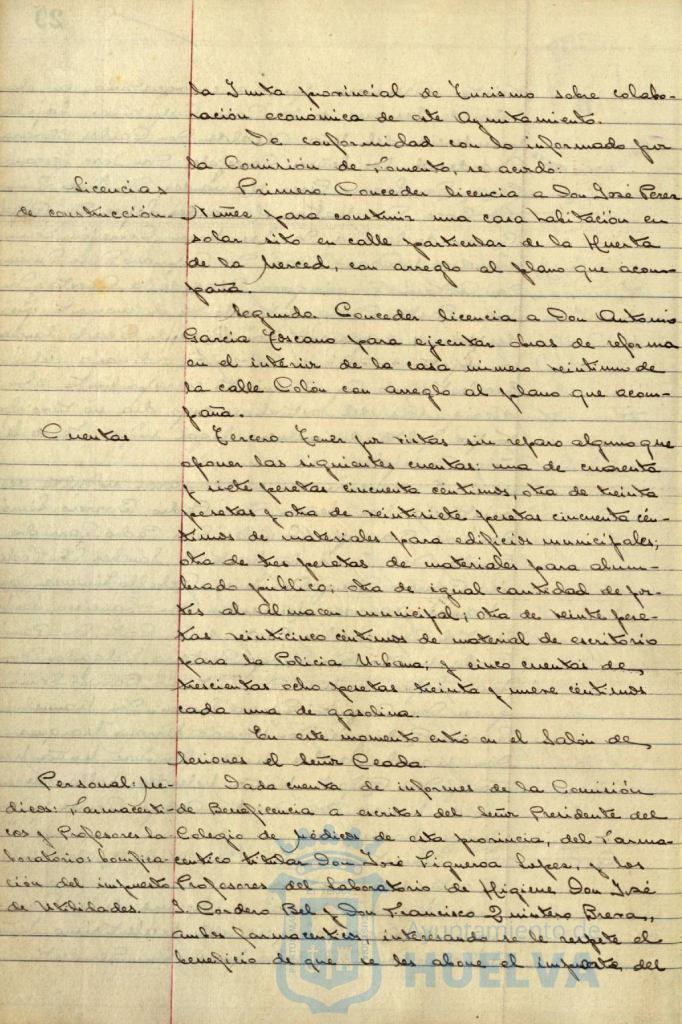 la Junta provincial de Turismo sobre colabo-
ración económica de este Ayuntamiento.
De conformidad con lo informado por
la Comisión de Fomento, se acordó:
Licencias
de construcción.
Primero. Conceder licencia a Don José Perez
Nuñez para construir una casa habitación en
solar sito en calle particular de la Huerta
de la Merced, con arreglo al plano que acom-
paña.
Segundo. Conceder licencia a Don Antonio
Garcia Toscano para ejecutar obras de reforma
en el interior de la casa número veintiuno de
la calle Colón con arreglo al plano que acom-
paña.
Cuentas
Tercero. Tener por vistas sin reparo alguno que
oponer las siguientes cuentas: una de cuarenta
y siete pesetas cincuenta céntimos, otra de treinta
pesetas y otra de veintisiete pesetas cincuenta cén-
timos de materiales para edificios municipales;
otra de tres pesetas de materiales para alum-
brado público; otra de igual cantidad de por-
tes al Almacen municipal; otra de veinte pese-
tas veinticinco céntimos de material de escritorio
para la Policia Urbana; y cinco cuentas de
trescientas ocho pesetas treinta y nueve céntimos
cada una de gasolina.
En este momento entró en el Salón de
Sesiones el Señor Ceada.
Personal: mé-
dicos: Farmacenti-
cos y Profesores la-
boratorio: bonifica-
ción del impuesto
de Utilidades.
Dada cuenta de informes de la Comisión
de Beneficencia a escritos del Señor Presidente del
Colegio de Médicos de esta provincia, del Farma-
centico titular Don José Figueroa Lopez, y los
Profesores del Laboratorio de Higiene Don José
J. Cordero Bel y Don Francisco Quintero Brexa,
ambos farmacenticos, interesando se le respete el
beneficio de que se les abone el importe del
Ayuntamiento de
HUELVA